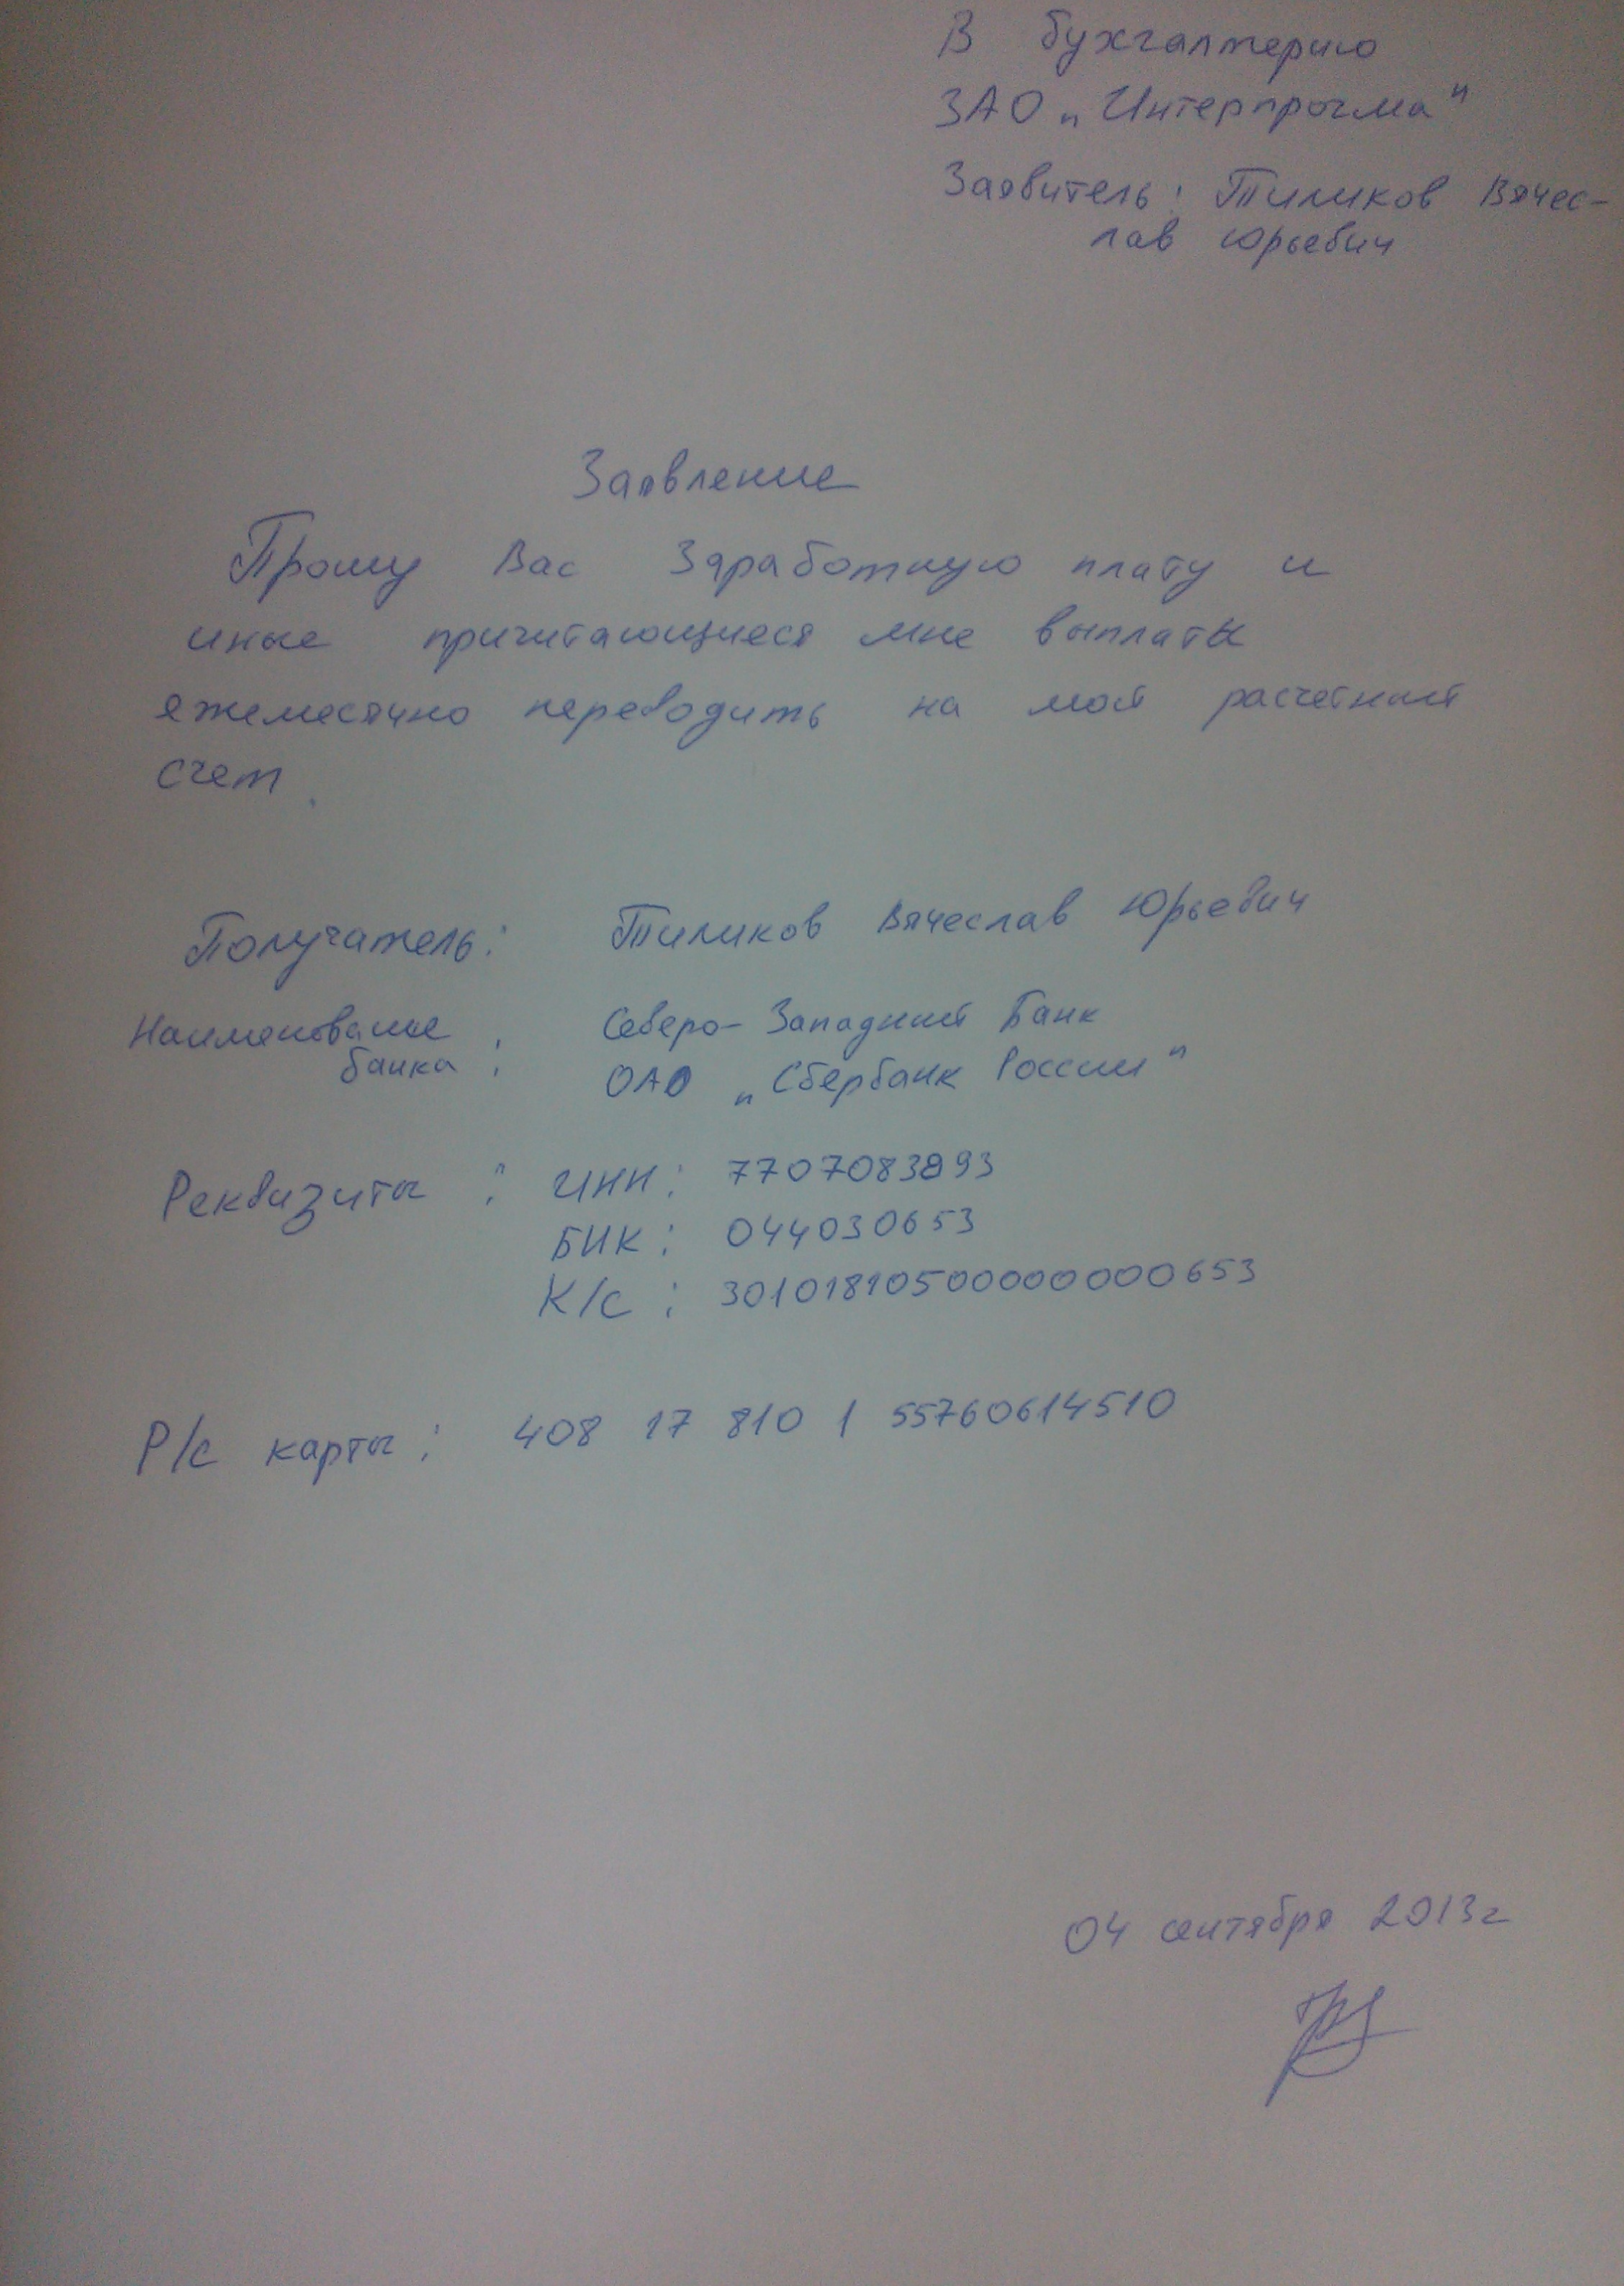 В бухгалтерию
ЗАО „Интерпрогма"
Заявитель: Тиликов Вячес-
лав Юрьевич
Заявление
Прошу Вас Заработную плату и
иные причитающиеся мне выплаты
ежемесячно переводить на мой расчетный
счет.
Получатель: Тиликов Вячеслав Юрьевич
Наименование банка: Северо-Западный Банк
ОАО „Сбербанк России"
Реквизиты: ИНН: 7707083893
БИК: 044030653
К/с: 30101810500000000653
Р/с карты: 408 17 810 1 55760614510
04 сентября 2013г